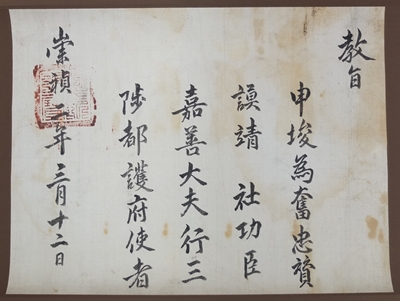 教旨
申埈為奮忠贊
謨靖社功臣
嘉善大夫行三
陟都護府使者
崇禎二年三月十二日